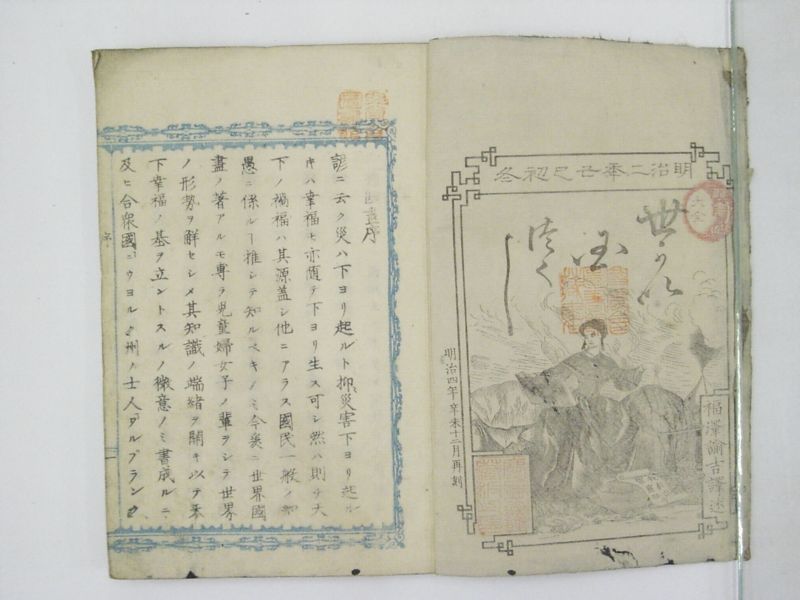 明治二秊己巳初冬
世かい
国
つくし
福澤諭吉譯述
明治四年辛未十二月再刻
國盡序
諺ニ云ク災ハ下ヨリ起ルト抑災害下ヨリ起ル
キハ幸福モ亦随テ下ヨリ生ス可シ然ハ則チ天
下ノ禍福ハ其源蓋シ他ニアラス國民一般ノ知
愚ニ係ルヿ推シテ知ルベキノミ今爰ニ世界國
盡ノ著アルモ専ラ兒童婦女子ノ輩ヲシテ世界
ノ形勢ヲ解セシメ其知識ノ端緒ヲ開キ以テ天
下幸福ノ基ヲ立ントスルノ微意ノミ書成ルニ
及ヒ合衆國ニウヨルク州ノ士人ダルプランク
序